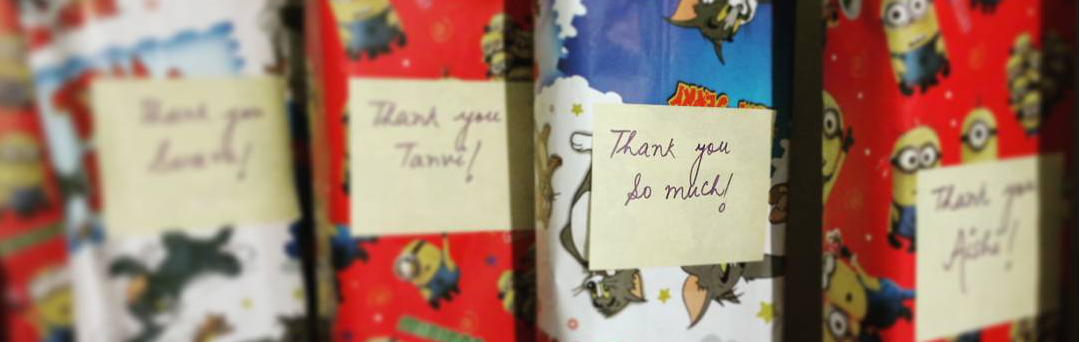 Thank you
Thank you
Tanvi!
Thank you
So much!
Thank you
Aishi!